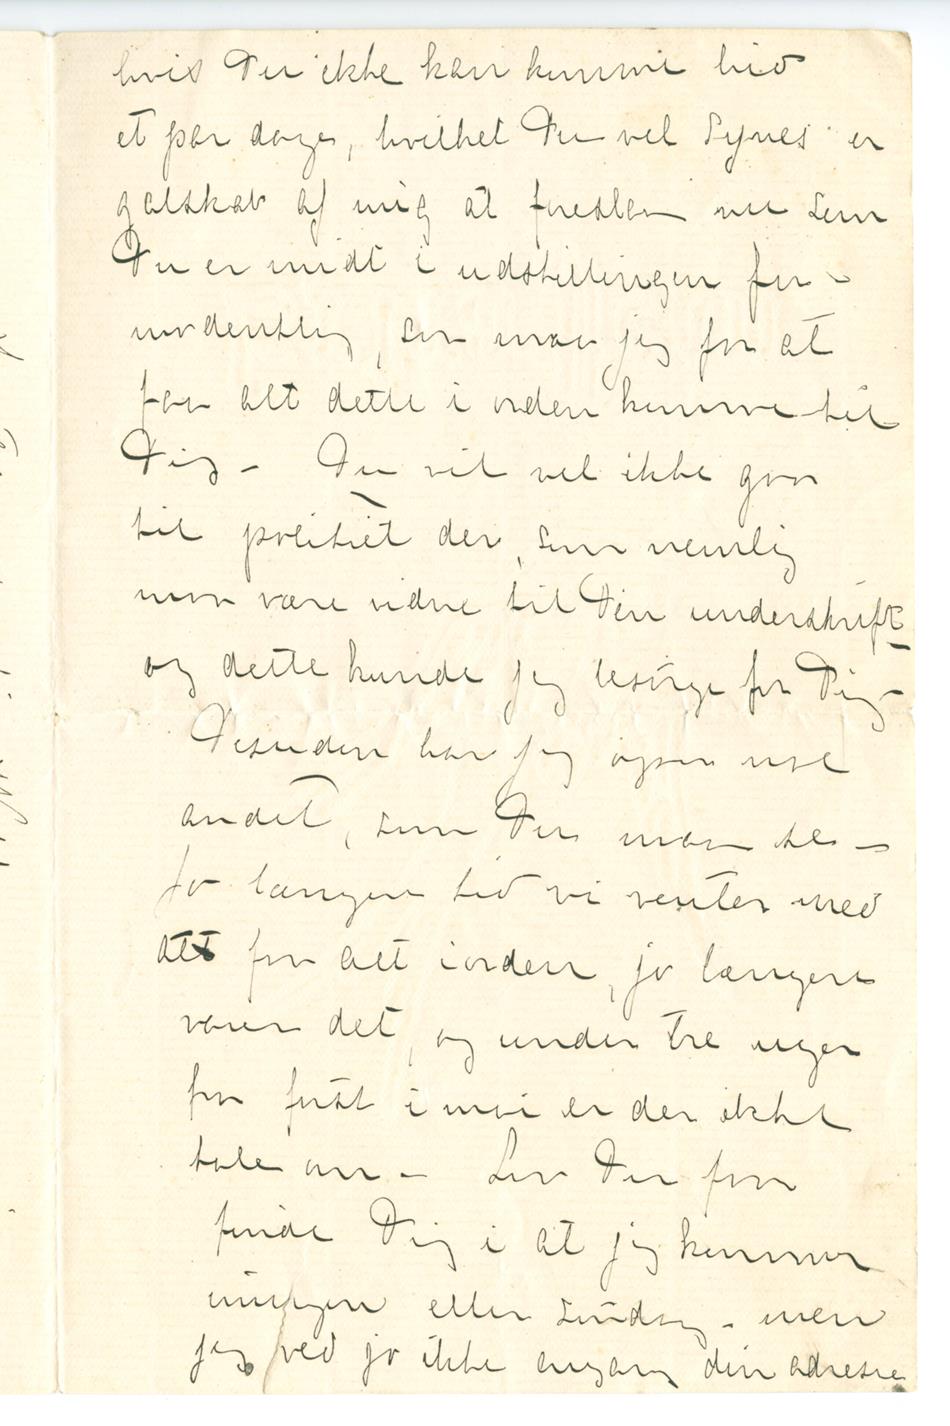 hvis Du ikke kan komme hid
et par dage, hvilket Du vel synes er
galskab af mig at foreslaa nu som
Du er midt i udstillingen for-
modentlig, saa maa jeg for at
faa alt dette i orden komme til
Dig – Du vil vel ikke gaa
til politiet der, som nemlig
maa være vidne til Din underskrift –
og dette kunde jeg besørge for Dig –
Desuden har jeg ogsaa noe
andet, som Du maa se –
Jo længere tid vi venter med
at faa alt i orden, jo længere
varer det, og under tre uger
fra først i mai er der ikke
tale om – Saa Du faar
finde Dig i at jeg kommer
imorgen eller søndag – men
jeg ved jo ikke engang din adresse